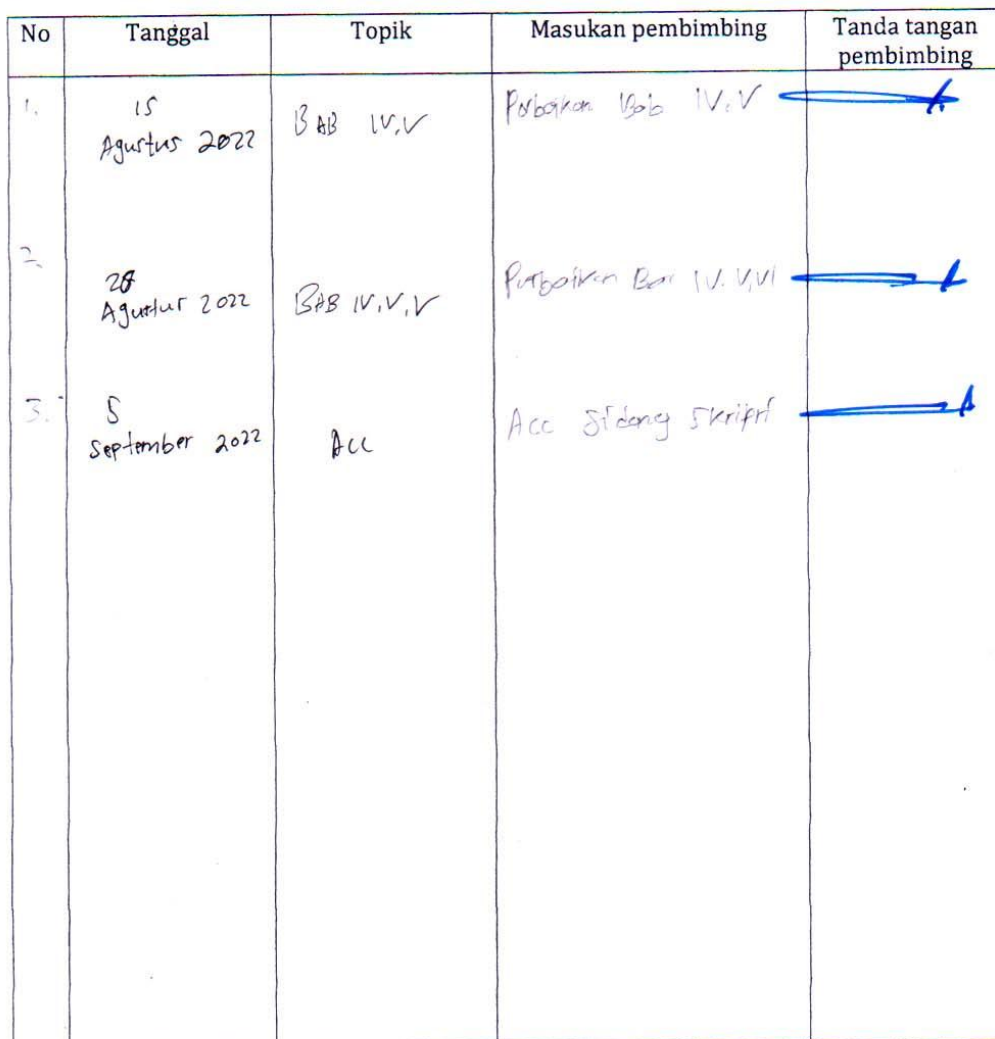 No Tanggal Topik Masukan pembimbing Tanda tangan pembimbing
1. 15 Agustus 2022 BAB IV, V Perbaikan Bab IV, V
2. 28 Agustus 2022 BAB IV, V, V Perbaikan Bab IV, V, VI
3. 5 September 2022 Acc Acc Sidang Skripsi